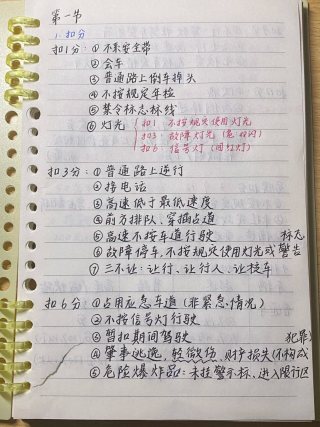 第一节
1. 扣分
扣1分：① 不系安全带
② 会车
③ 普通路上倒车掉头
④ 不按规定车检
⑤ 禁令标志标线
⑥ 灯光 扣1：不按规定使用灯光
扣3：故障灯光（危双闪）
扣6：信号灯（闯红灯）
扣3分：① 普通路上逆行
② 接电话
③ 高速低于最低速度
④ 前方排队，穿插占道
⑤ 高速不按车道行驶 标志
⑥ 故障停车，不按规定使用灯光或警告
⑦ 三不让：让行、让行人、让校车
扣6分：① 占用应急车道（非紧急情况）
② 不按信号灯行驶
③ 暂扣期间驾驶 犯罪）
④ 肇事逃逸，轻微伤，财产损失（不构成
⑤ 危险爆炸品：未挂警示标、进入限行区